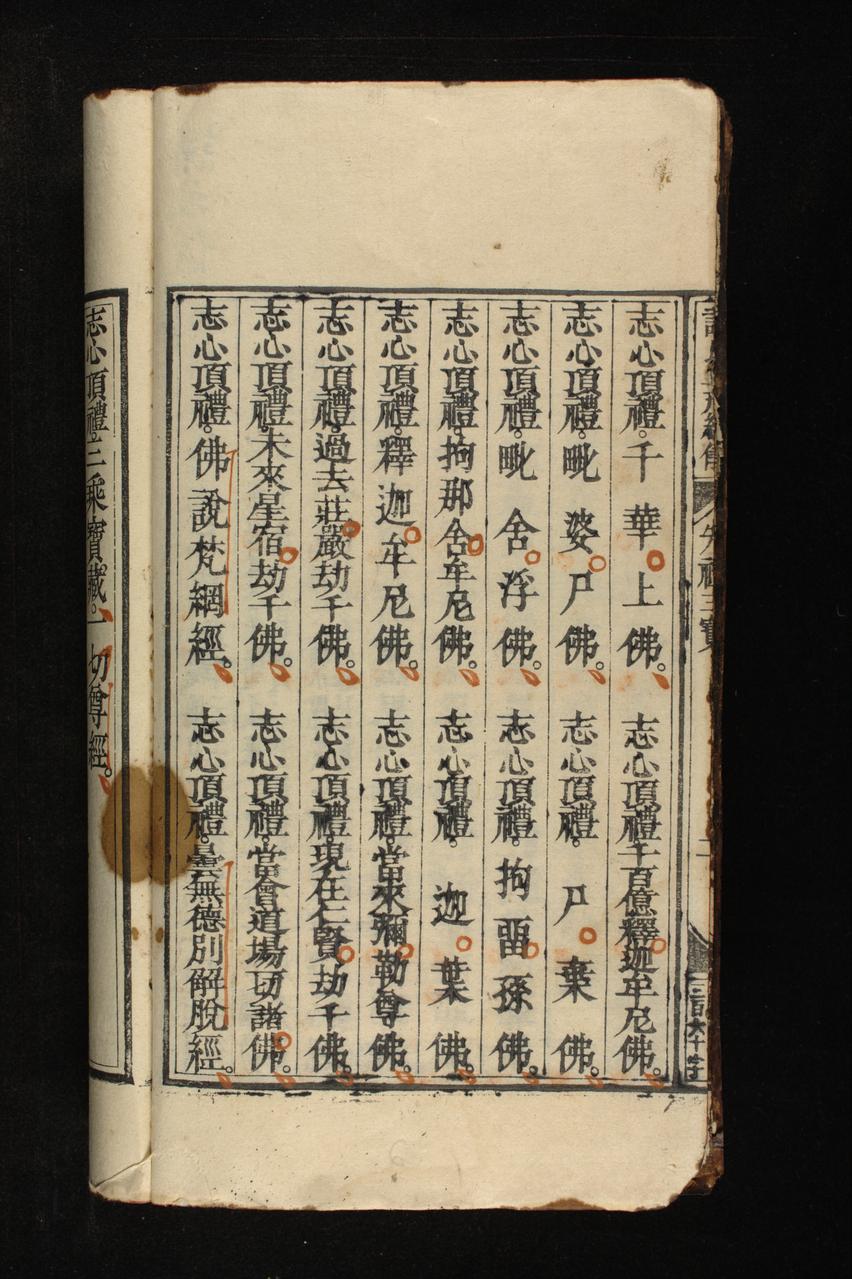 志心頂禮。千華上佛。 志心頂禮千百億釋迦牟尼佛。
志心頂禮。毗婆尸佛。 志心頂禮。尸棄佛。
志心頂禮。毗舍浮佛。 志心頂禮。拘留孫佛。
志心頂禮。拘那舍牟尼佛。 志心頂禮。迦葉佛。
志心頂禮。釋迦牟尼佛。 志心頂禮。當來彌勒尊佛。
志心頂禮。過去莊嚴劫千佛。 志心頂禮。現在仁賢劫千佛。
志心頂禮。未來星宿劫千佛。 志心頂禮。當會道場一切諸佛。
志心頂禮。佛說梵網經。 志心頂禮。曇無德別解脫經。
志心頂禮。三乘寶藏。一切尊經。